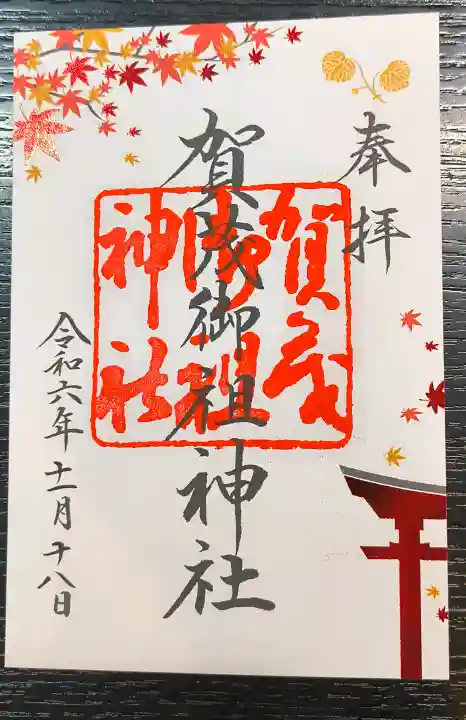 奉拝
賀茂御祖神社
賀茂
御祖
神社
令和六年十一月十八日